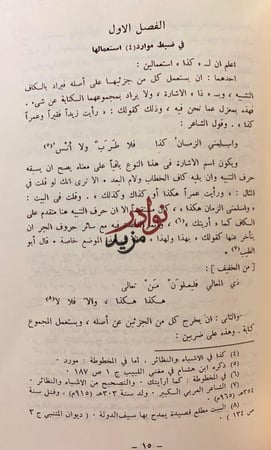 الفصل الاول
في ضبط موارد(٤) استعمالها
اعلم ان لـ « كذا » استعمالين :
احدهما : ان يستعمل كل من جزئيها على أصله فيراد بالكاف
التشبيه ، وبـ « ذا » الاشارة ، ولا يراد بمجموعهما الكناية عن شىء .
فهذه بمعزل عما نحن فيه ، وذلك كقولك : « رأيت زيداً فقيراً وعمراً
كذا » . وقول الشاعر :
واسلمني الزمان كذا فلا طرب ولا أنس(٥)
ويكون اسم الاشارة في هذا النوع باقياً على معناه يصح ان يسبقه
حرف التنبيه وان يليه كاف الخطاب ولام البعد . الا ترى انك لو قلت في
المثال : « ورأيت عمراً هكذا أو كذاك وكذلك » . وقلت في البيت :
« واسلمني الزمان هكذا » ان حرف التنبيه هنا متقدم على
الكاف كما أريتك(٦) ، مع سائر حروف الجر ان
يتأخر عنها كقولك : « بهذا ولهذا » الموضع خاصة . قال أبو
الطيب(٧)
[ من الخفيف ] :
ذي المعالي فليعلون من تعالى
هكذا هكذا ، والا فلا لا(٨)
والثاني : ان يخرج كل من الجزئين عن أصله ، ويستعمل المجموع
كناية . وهذه على ضربين :
(٤) كذا في الاشباه والنظائر . أما في المخطوطة : مورد .
(٥) ذكره ابن هشام في مغني اللبيب ج ١ ص ١٨٧ .
(٦) في المخطوطة : كما ارايتك . والتصحيح من الاشباه والنظائر .
(٧) الشاعر العربي الكبير . ولد سنة ٣٠٣هـ (٩١٥م) ، وقتل سنة
٣٥٤هـ (٩٦٥م) .
(٨) البيت مطلع قصيدة يمدح بها سيف الدولة . ( ديوان المتنبي ج ٣
ص ١٣٤ )
- ١٥ -
نوادر
مزيد